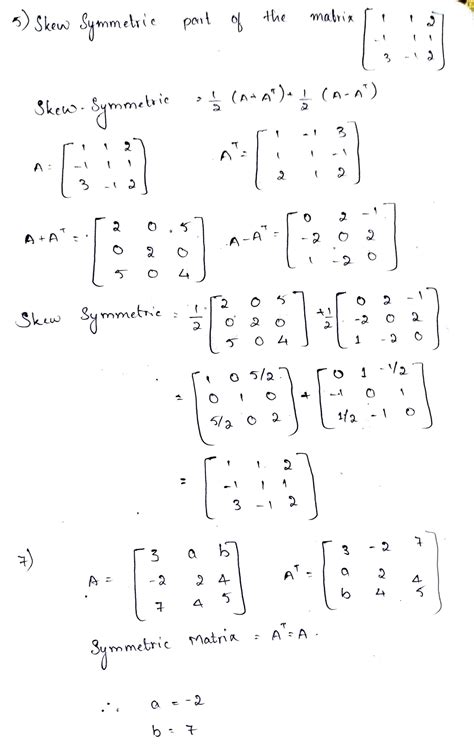 5) Skew Symmetric part of the matrix [1 1 2; -1 1 1; 3 -1 2]
Skew-Symmetric = 1/2 (A+Aᵀ)+1/2 (A-Aᵀ)
A = [1 1 2; -1 1 1; 3 -1 2] Aᵀ = [1 -1 3; 1 1 -1; 2 1 2]
A+Aᵀ = [2 0 5; 0 2 0; 5 0 4] A-Aᵀ = [0 2 -1; -2 0 2; 1 -2 0]
Skew Symmetric = 1/2 [2 0 5; 0 2 0; 5 0 4] + 1/2 [0 2 -1; -2 0 2; 1 -2 0]
= [1 0 5/2; 0 1 0; 5/2 0 2] + [0 1 -1/2; -1 0 1; 1/2 -1 0]
= [1 1 2; -1 1 1; 3 -1 2]
7) A = [3 a b; -2 2 4; 7 4 5] Aᵀ = [3 -2 7; a 2 4; b 4 5]
Symmetric Matrix = Aᵀ=A.
∴ a = -2
b = 7